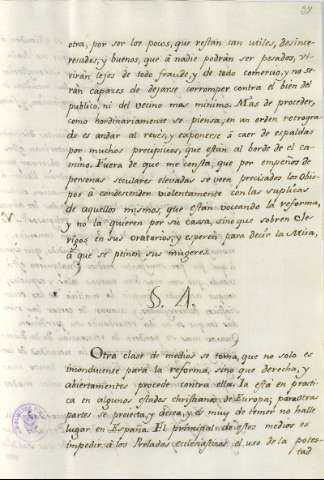 39
otra, por ser los pocos, que restan tan utiles, desinte-
resados, y buenos, que á nadie podrán ser pesados, vi-
virán lejos de todo fraude, y de todo comercio, y no se-
rán capaces de dejarse corromper contra el bien del
publico, ni del vecino mas minimo. Mas de proceder,
como hordinariamente se piensa, en un orden retrogra-
do es andar al revés, y exponerse á caer de espaldas
por muchos precipicios, que están al borde de el ca-
mino. Fuera de que me consta, que por empeños de
personas seculares elevadas se veen precisados los Obis-
pos á condescender violentamente con las suplicas
de aquellos mismos, que están voceando la reforma,
y no la quieren por su cassa, sino que sobren Cle-
rigos en sus oratorios, y esperen para decir la Misa,
á que se peinen sus mugeres.
§. 4.
Otra clase de medios se toma, que no solo es
inconducente para la reforma, sino que derecha, y
abiertamente procede contra ella. Ia está en practi-
ca en algunos estados christianos de Europa; para otras
partes se proyecta, y desea, y es muy de temer no halle
lugar en España. El principal de estos medios es
impedir á los Prelados ecclesiasticos el uso de la potes-
tad